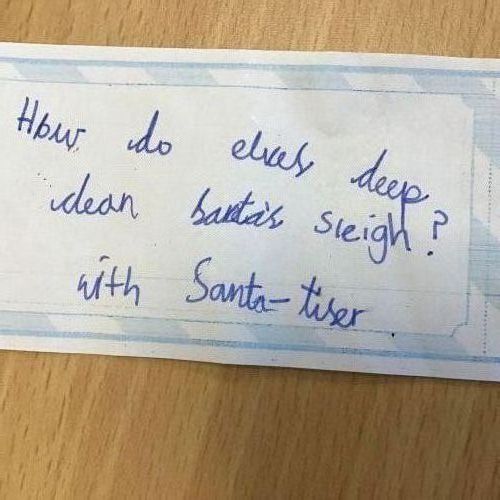 How do elves deep
clean Santa's sleigh?
with Santa-tiser